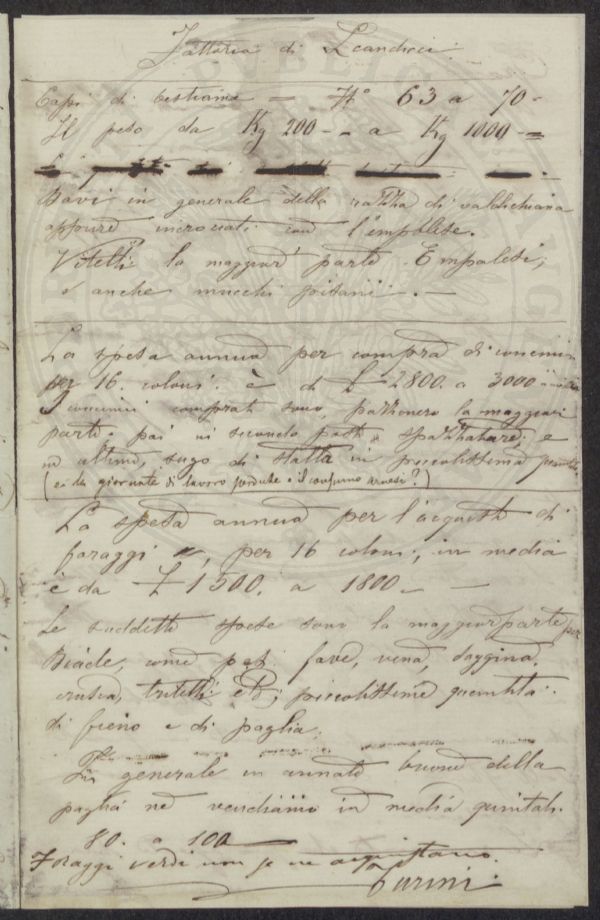 Fattoria di Scandicci
Capi di bestiame = N° 63 a 70 -
Il peso da Kg 200 - - a Kg 1000 - =
Bovi in generale della razza di Valdichiana
oppure incrociati con l'empolese.
Vitelli la maggior parte Empolesi,
e anche mucchi pisani . —
La spesa annua per compra di concimi
per 16. coloni. è di £ 2800. a 3000
I concimi comprati sono, pozzonero la maggior
parte. poi in secondo posto spazzature; e
in ultimo, sugo di stalla in piccolissima quantità
(e le giornate di lavoro perdute e il consumo arnesi?)
La spesa annua per l'acquisto di
foraggi, per 16 coloni, in media
è da £ 1500. a 1800 — —
Le suddette spese sono la maggior parte per
Biade, come fave, vena, saggina,
crusca, tritelli piccolissime quantità
di fieno e di paglia.
In generale in annate buone della
paglia ne vendiamo in media quintali.
80. a 100
Foraggi verdi non se ne acquistano.
Turini